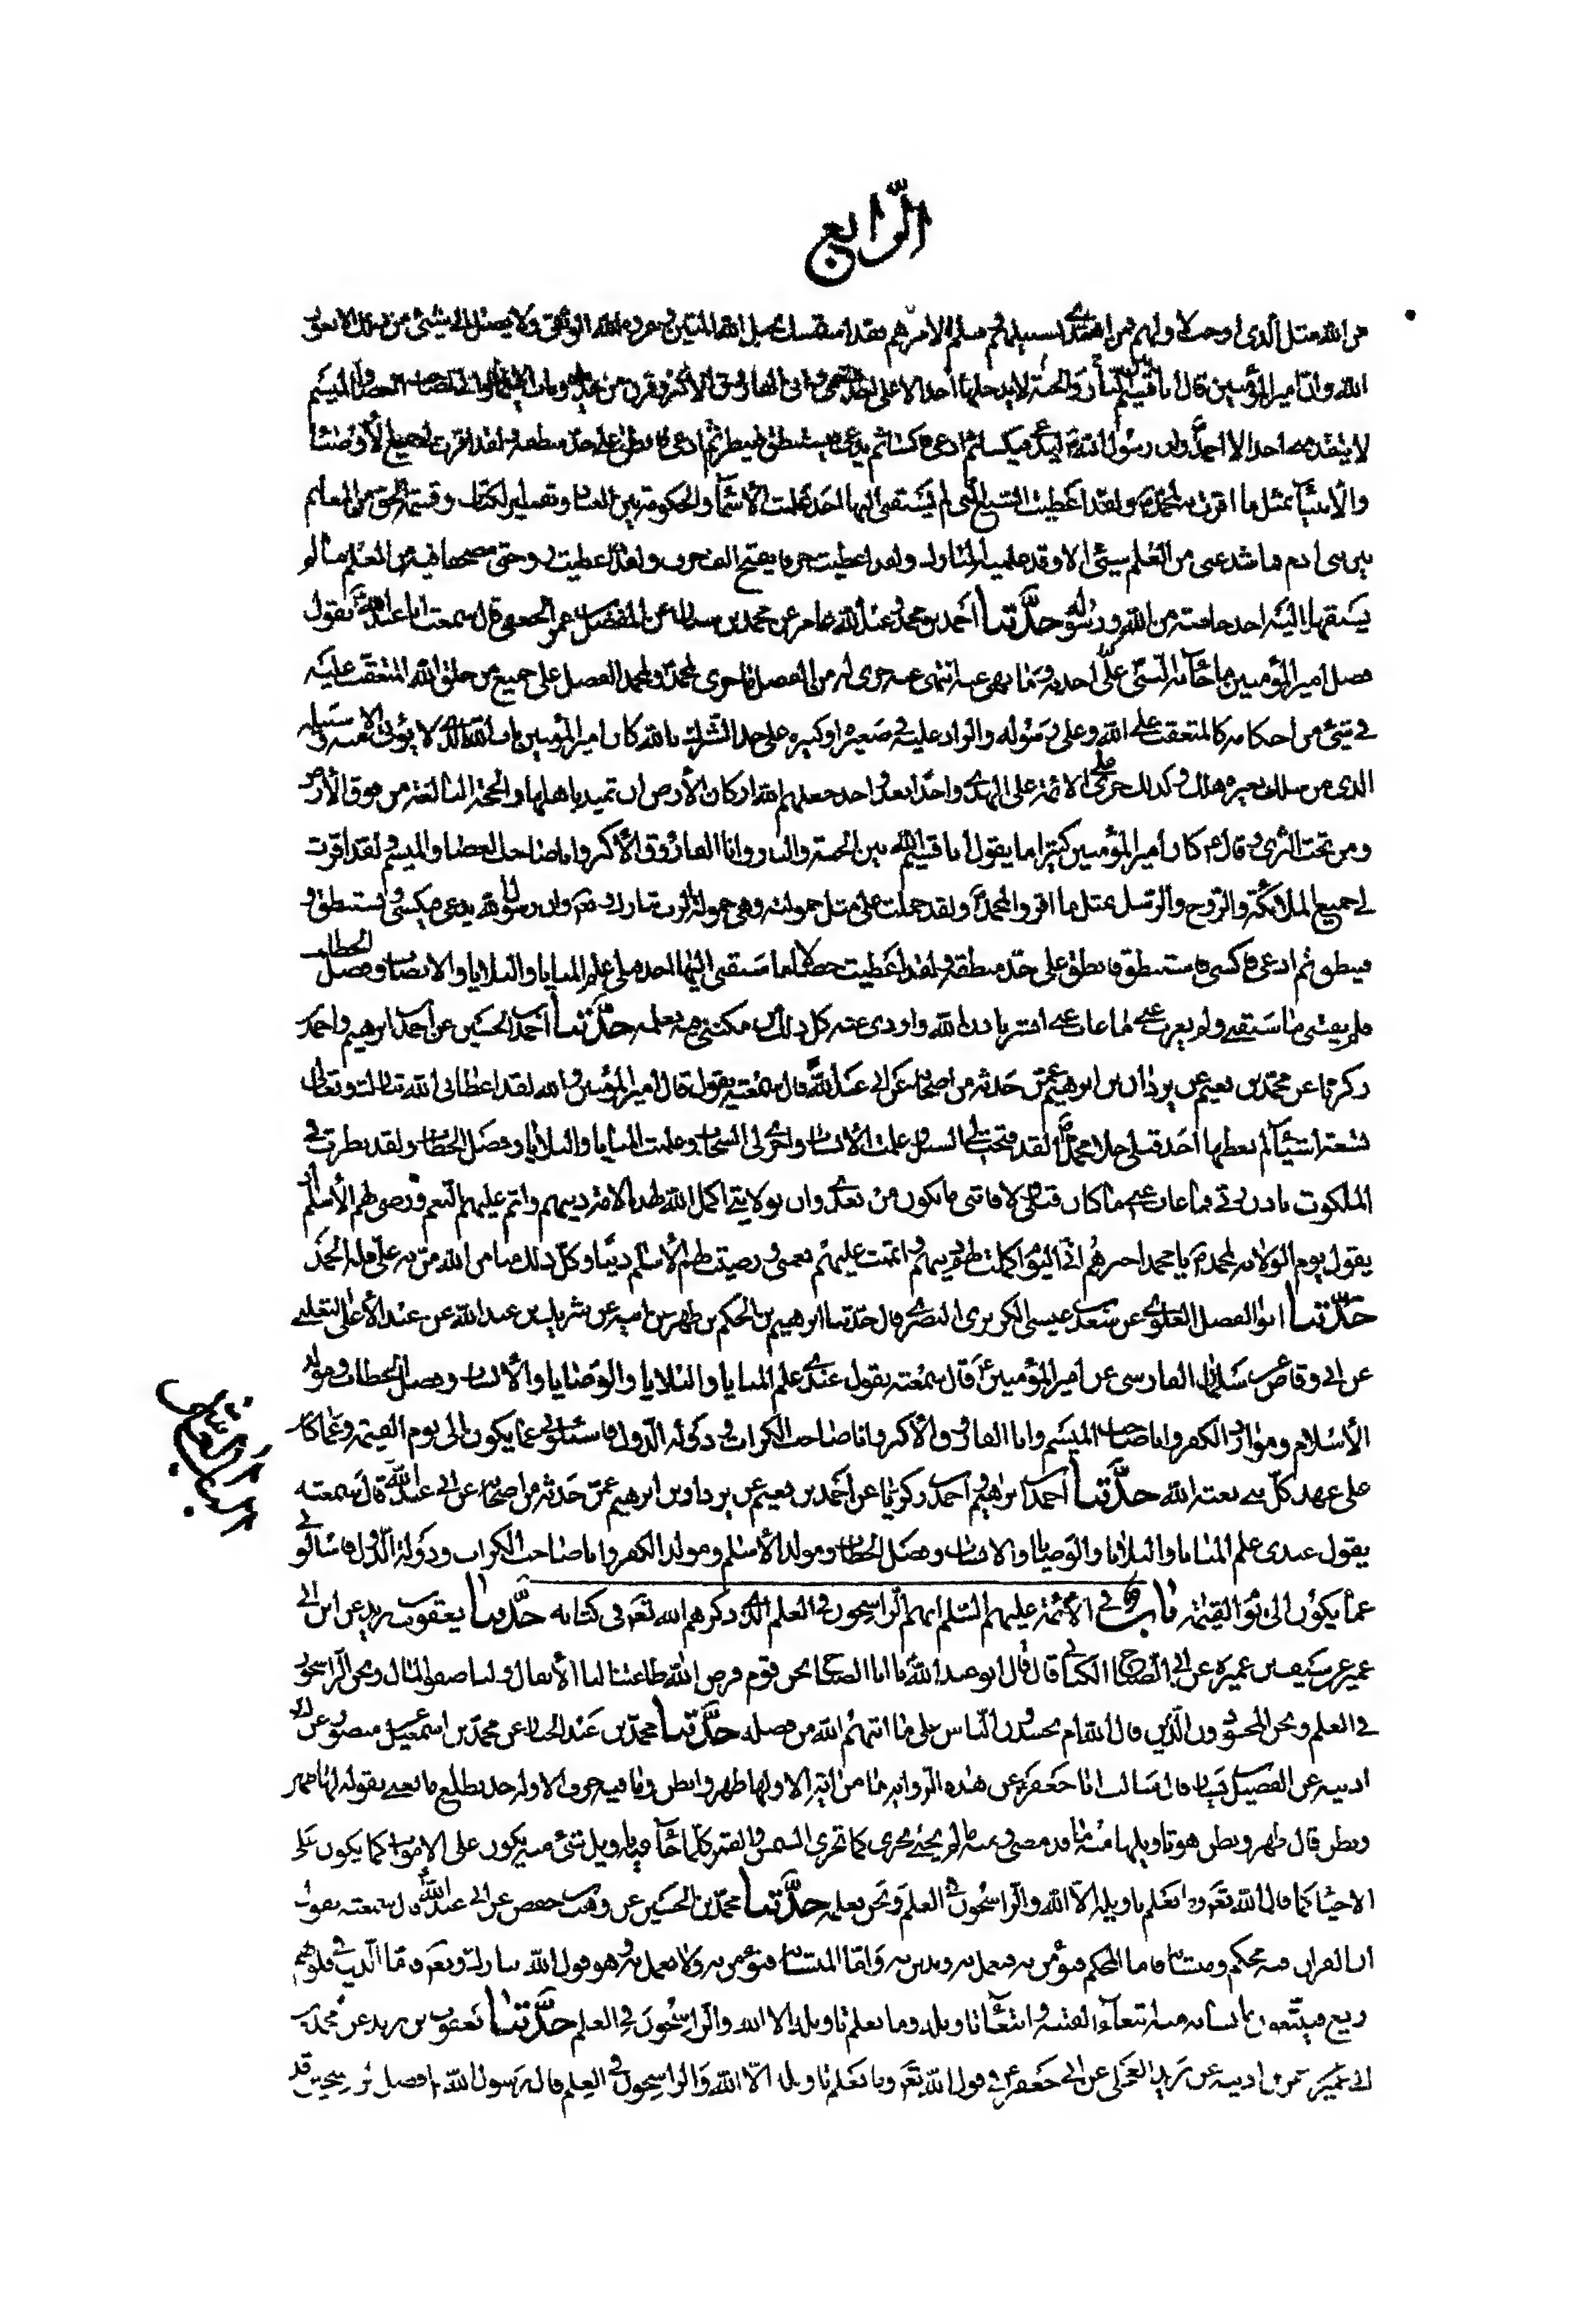 الرابع
من الله مثل الذى اولهم فمن اهتدى بسبيلهم وسلم لامرهم فقد استمسك بحبل الله المتين وعروة الله الوثقى ولا يصل الى شىء من ذلك الا بعون
الله وان امير المؤمنين قال انا قسيم النار والجنة لا يدخلها احد الا على احد قسمى وانى الفاروق الاكبر وقرن من حديد وباب الايمان وانى لصاحب العصا والميسم
لا يتقدمنى احد الا احمد وان رسول الله ليدعى فيكسى ثم ادعى فاكسى ثم يدعى فيستنطق فينطق ثم ادعى فانطق على حد منطقه ولقد اقرت لى جميع الاوصياء
والانبياء بمثل ما اقرت به لمحمد ولقد اعطيت السبع التى لم يسبقنى اليها احد علمت الاسماء والحكومة بين العباد وتفسير الكتاب وقسمة الحق من المغانم
بين بنى ادم فما شذ عنى من العلم شىء الا وقد علمنيه المبارك ولقد اعطيت حرفا يفتح الف حرف ولقد اعطيت زوجتى مصحفا فيه من العلم ما لم
يسبقها اليه احد خاصة من الله ورسوله حدثنا احمد بن محمد وعبد الله بن عامر عن محمد بن سنان عن المفضل بن عمر الجعفى قال سمعت ابا عبد الله يقول
فضل امير المؤمنين ما جاء به النبى على احد به وما نهى عنه انتهى عنه جرى له من الفضل ما جرى لمحمد ولمحمد الفضل على جميع من خلق الله المتعقب عليه
فى شىء من احكامه كالمتعقب على الله وعلى رسوله والراد عليه فى صغيرة او كبيرة على حد الشرك بالله كان امير المؤمنين باب الله الذى لا يؤتى الا منه وسبيله
الذى من سلك بغيره هلك وكذلك جرى على الائمة الهدى واحدا بعد واحد جعلهم الله اركان الارض ان تميد باهلها والحجة البالغة من فوق الارض
ومن تحت الثرى وقال كان امير المؤمنين كثيرا ما يقول انا قسيم الله بين الجنة والنار وانا الفاروق الاكبر وانا صاحب العصا والميسم ولقد اقرت
لى جميع الملائكة والروح والرسل بمثل ما اقروا لمحمد ولقد حملت على مثل حمولته وهى حمولة الرب تبارك وتعالى وان رسول الله يدعى فيكسى ويستنطق و
فينطق ثم ادعى فاكسى فاستنطق فانطق على حد منطقه ولقد اعطيت خصالا ما سبقنى اليها احد قبلى علم المنايا والبلايا والانساب وفصل الخطاب
فلم يفتنى ما سبقنى ولم يعزب عنى ما غاب عنى ابشر باذن الله واودى عنه كل ذلك من مكننى فيه بعلمه حدثنا احمد بن الحسين عن احمد بن ابرهيم واحمد
زكريا عن محمد بن نعيم عن يزداد بن ابرهيم عمن حدثه من اصحابه عن ابى عبد الله قال سمعته يقول قال امير المؤمنين والله لقد اعطانى الله تبارك وتعالى
تسعة اشياء لم يعطها احد قبلى خلا محمد لقد فتحت لى السبل وعلمت الانساب واجرى لى السحاب وعلمت المنايا والبلايا وفصل الخطاب ولقد نظرت فى
الملكوت باذن ربى فما غاب عنى ما كان قبلى ولا فاتنى ما يكون من بعدى وان بولايتى اكمل الله لهذه الامة دينهم واتم عليهم النعم ورضى لهم الاسلام
يقول يوم الولاية لمحمد يا محمد اخبرهم انى اليوم اكملت لهم دينهم واتممت عليهم نعمتى ورضيت لهم الاسلام دينا وكل ذلك منا من الله من به على فله الحمد
حدثنا ابو الفضل العلوى عن سعد بن عيسى الكريزى البصرى قال حدثنا ابرهيم بن الحكم بن ظهير عن ابيه عن شريك بن عبد الله عن عبد الاعلى الثعلبى
عن ابى وقاص عن سلمان الفارسى عن امير المؤمنين قال سمعته يقول عندى علم المنايا والبلايا والوصايا والانساب وفصل الخطاب ومولد
الاسلام وموارد الكفر وانا صاحب الميسم وانا الفاروق الاكبر وانا صاحب الكرات ودولة الدول فاسئلونى عما يكون الى يوم القيمة وعما كان
على عهد كل نبى بعثه الله حدثنا احمد بن ابرهيم واحمد بن زكريا عن احمد بن نعيم عن يزداد بن ابرهيم عمن حدثه من اصحابه عن ابى عبد الله قال سمعته
يقول عندى علم المنايا والبلايا والوصايا والانساب وفصل الخطاب ومولد الاسلام ومولد الكفر وانا صاحب الكرات ودولة الدول فاسألونى
عما يكون الى يوم القيمة باب فى الائمة عليهم السلم انهم الراسخون فى العلم الذى ذكرهم الله تعالى فى كتابه حدثنا يعقوب بن يزيد عن ابن ابى
عمير عن سيف بن عميرة عن ابى الصباح الكنانى قال قال ابو عبد الله يا ابا الصباح نحن قوم فرض الله طاعتنا لنا الانفال ولنا صفو المال ونحن الراسخون
فى العلم ونحن المحسودون الذين قال الله ام يحسدون الناس على ما اتيهم الله من فضله حدثنا محمد بن عبد الجبار عن محمد بن اسمعيل عن منصور عن ابن
اذينة عن الفضيل بن يسار قال سالت ابا جعفر عن هذه الرواية ما من اية الا ولها ظهر وبطن وما فيه حرف الا وله حد يطلع ما يعنى بقوله لها ظهر
وبطن قال ظهر وبطن هو تاويلها منه ما قد مضى ومنه ما لم يجىء يجرى كما تجرى الشمس والقمر كلما جاء فيه تاويل شىء منه يكون على الاموات كما يكون على
الاحياء كما قال الله تعالى وما يعلم تاويله الا الله والراسخون فى العلم ونحن نعلمه حدثنا محمد بن الحسين عن وهيب بن حفص عن ابى عبد الله قال سمعته يقول
ان القران فيه محكم ومتشابه فاما المحكم فنؤمن به فنعمل به وندين به واما المتشابه فنؤمن به ولا نعمل به وهو قول الله تبارك وتعالى فاما الذين فى قلوبهم
زيغ فيتبعون ما تشابه منه ابتغاء الفتنة وابتغاء تاويله وما يعلم تاويله الا الله والراسخون فى العلم حدثنا يعقوب بن يزيد عن محمد بن
ابى عمير عن ابن اذينة عن بريد العجلى عن ابى جعفر فى قول الله تعالى وما يعلم تاويله الا الله والراسخون فى العلم قال رسول الله افضل الراسخين قد
الباب العاشر